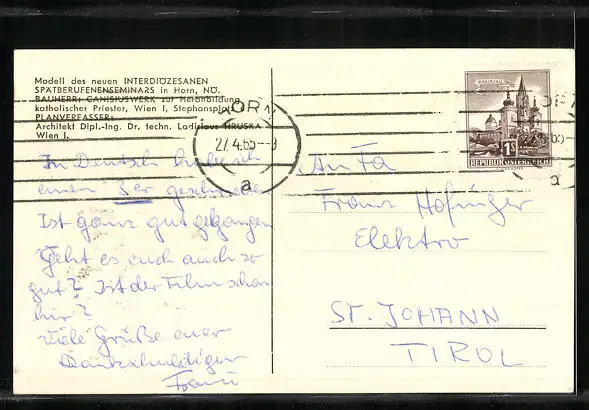 Modell des neuen INTERDIÖZESANEN
SPÄTBERUFENENSEMINARS in Horn, NÖ.
BAUHERR: CANISIUSWERK zur Heranbildung
katholischer Priester, Wien I, Stephansplatz
PLANVERFASSER:
Architekt Dipl.-Ing. Dr. techn. Ladislaus HRUSKA
Wien I.
HORN
27.4.65--9
a
MARIAZELL
1S
REPUBLIK ÖSTERREICH
a
In Deutsch habe ich
einen 3er geschrieben
Ist ganz gut gegangen
Geht es euch auch so
gut? Ist der Film schon
hir?
Viele Grüße euer
Dankschuldiger
Franz
An Fa
Franz Hofinger
Elektro
ST. JOHANN
TIROL